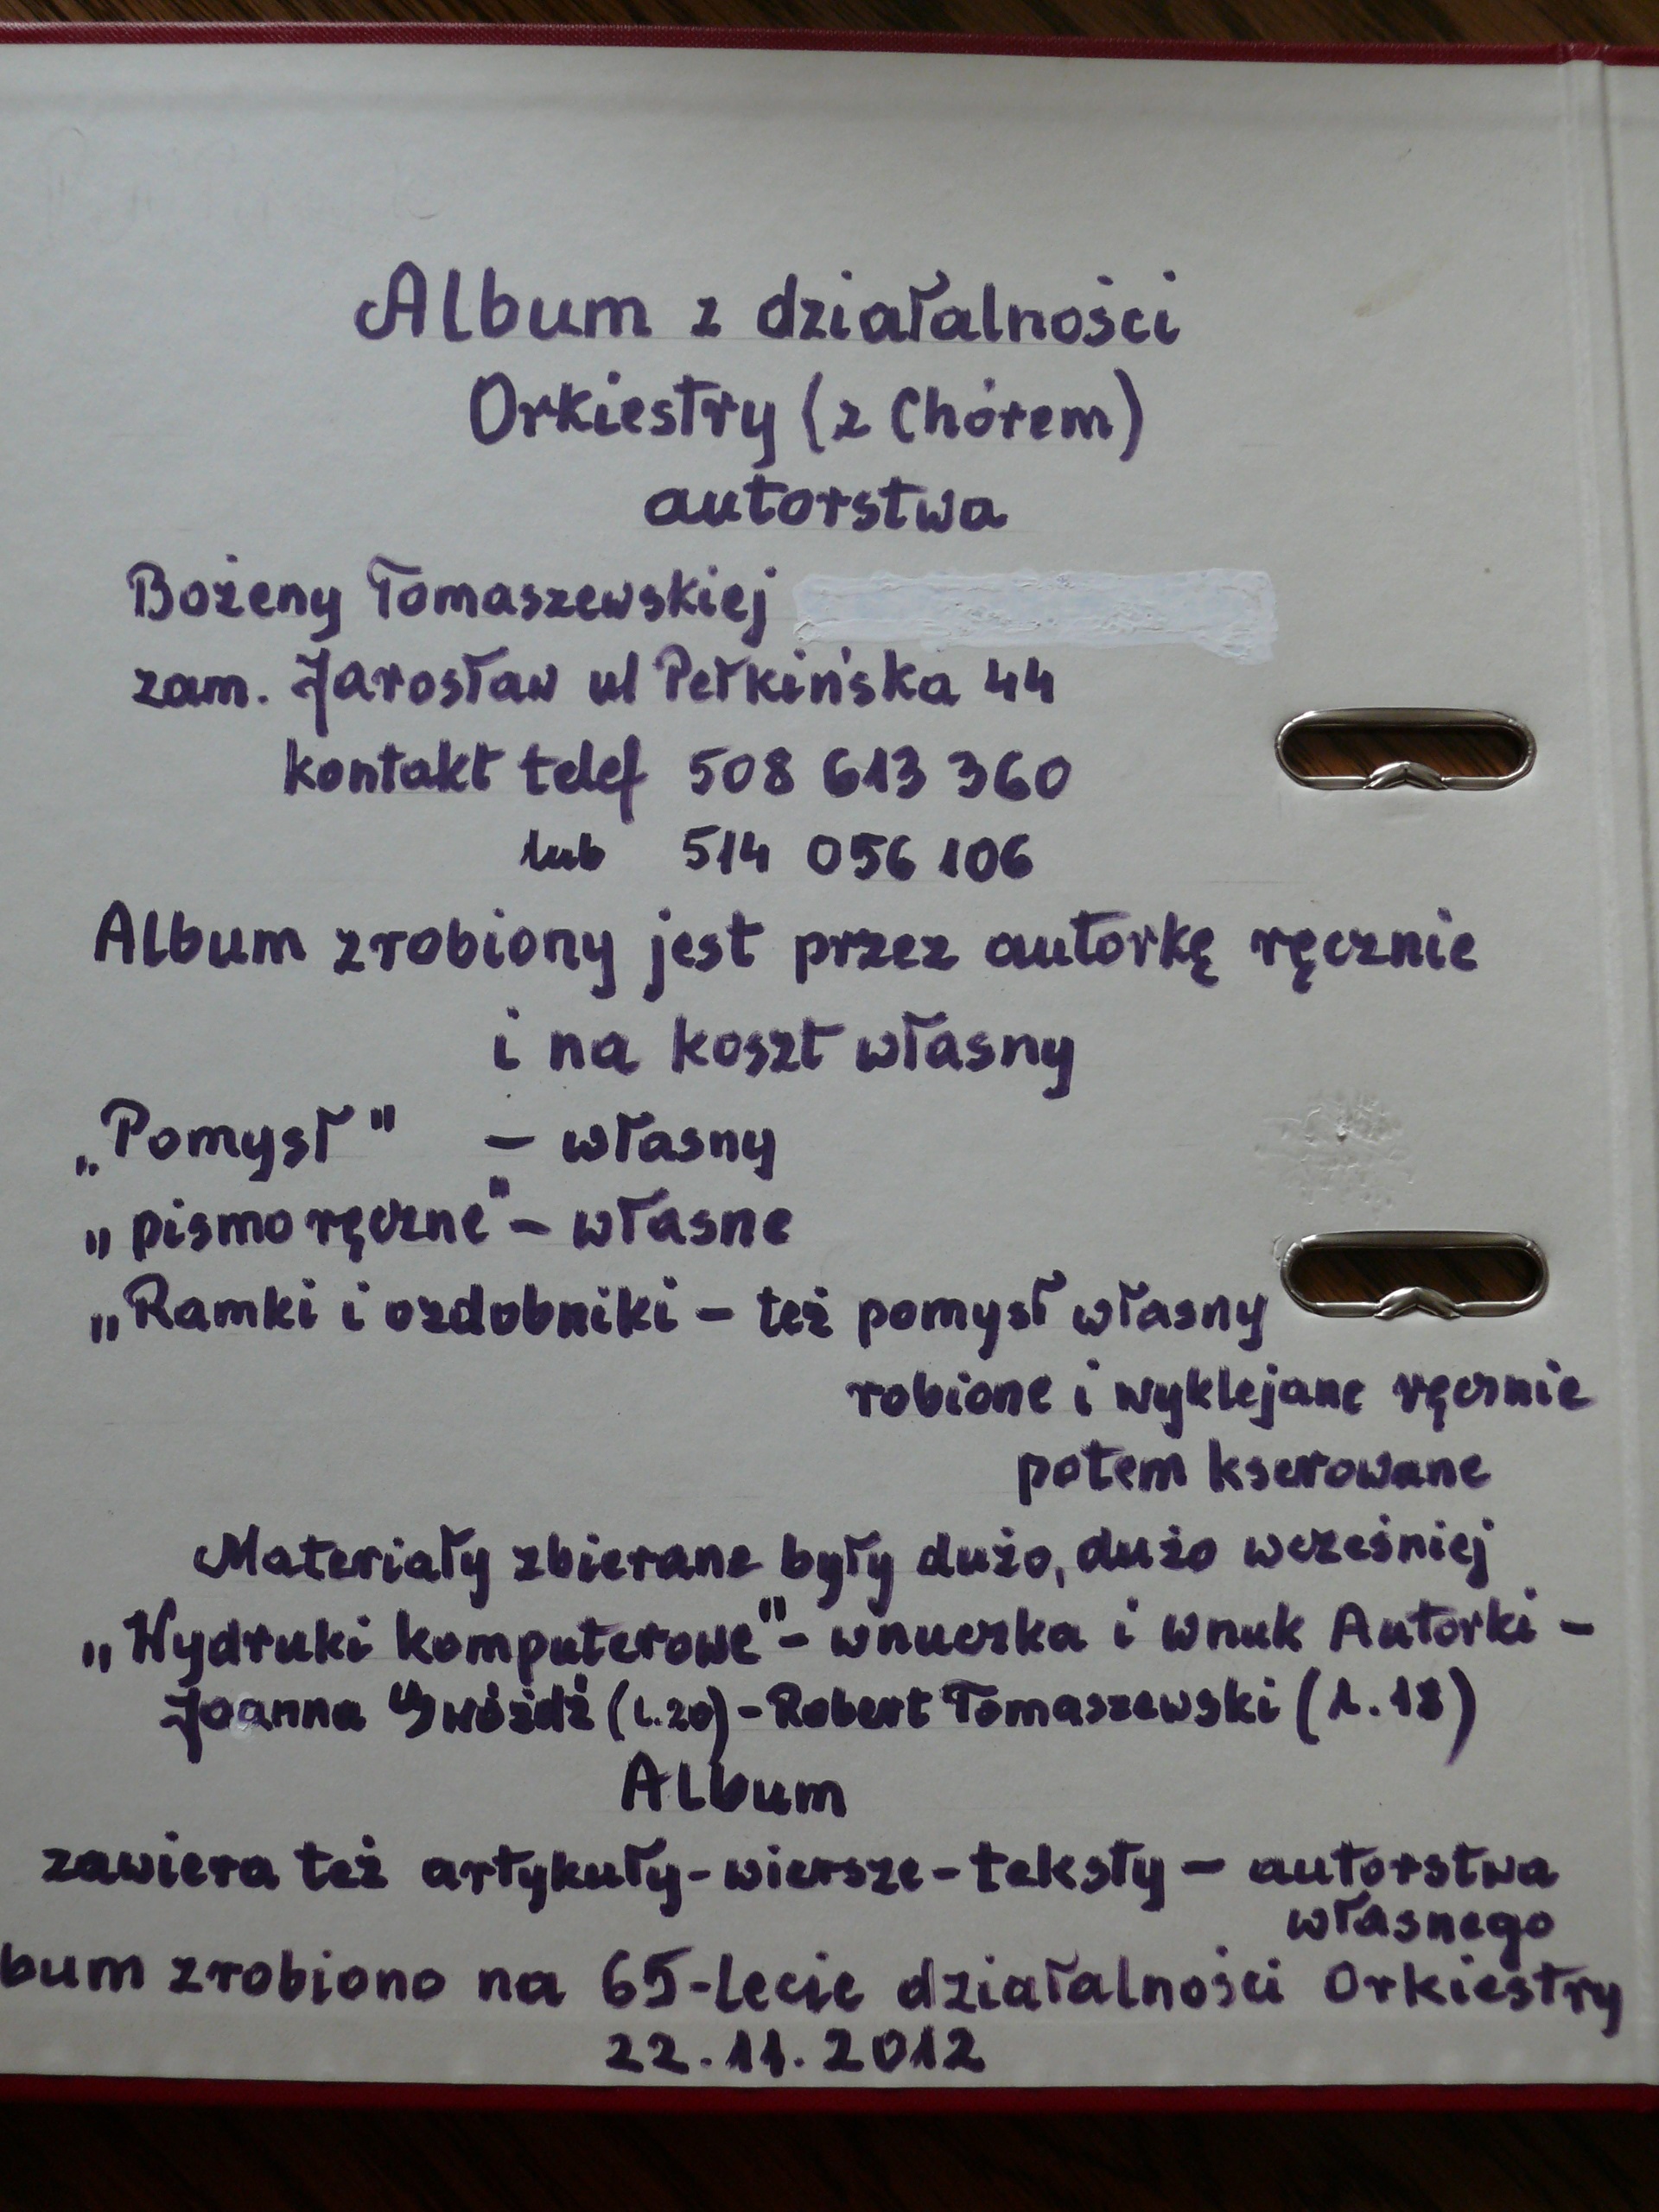 Album z działalności
Orkiestry (z Chórem)
autorstwa
Bożeny Tomaszewskiej
zam. Jarosław ul Pełkińska 44
kontakt telef 508 613 360
lub 514 056 106
Album zrobiony jest przez autorkę ręcznie
i na koszt własny
„Pomysł" - własny
„pismo ręczne" - własne
„Ramki i ozdobniki - też pomysł własny
robione i wyklejane ręcznie
potem kserowane
Materiały zbierane były dużo, dużo wcześniej
„Wydruki komputerowe" - wnuczka i wnuk Autorki -
Joanna Gwóźdź (l.20) - Robert Tomaszewski (l.18)
Album
zawiera też artykuły - wiersze - teksty - autorstwa
własnego
bum zrobiono na 65-lecie działalności Orkiestry
22.11.2012